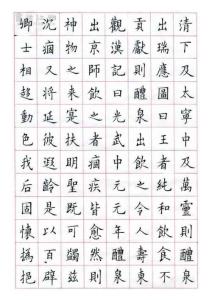 清下及太寧中及萬靈則醴泉
出瑞應圖曰王者純和飲食不
貢獻則醴泉出飲之令人壽東
觀漢記曰光武中元元年醴泉
出京師飲之者痼疾皆愈然則
神物之來寔扶明聖既可蠲茲
沈痼又將延彼遐齡是以百辟
卿士相趨動色我后固懷撝挹